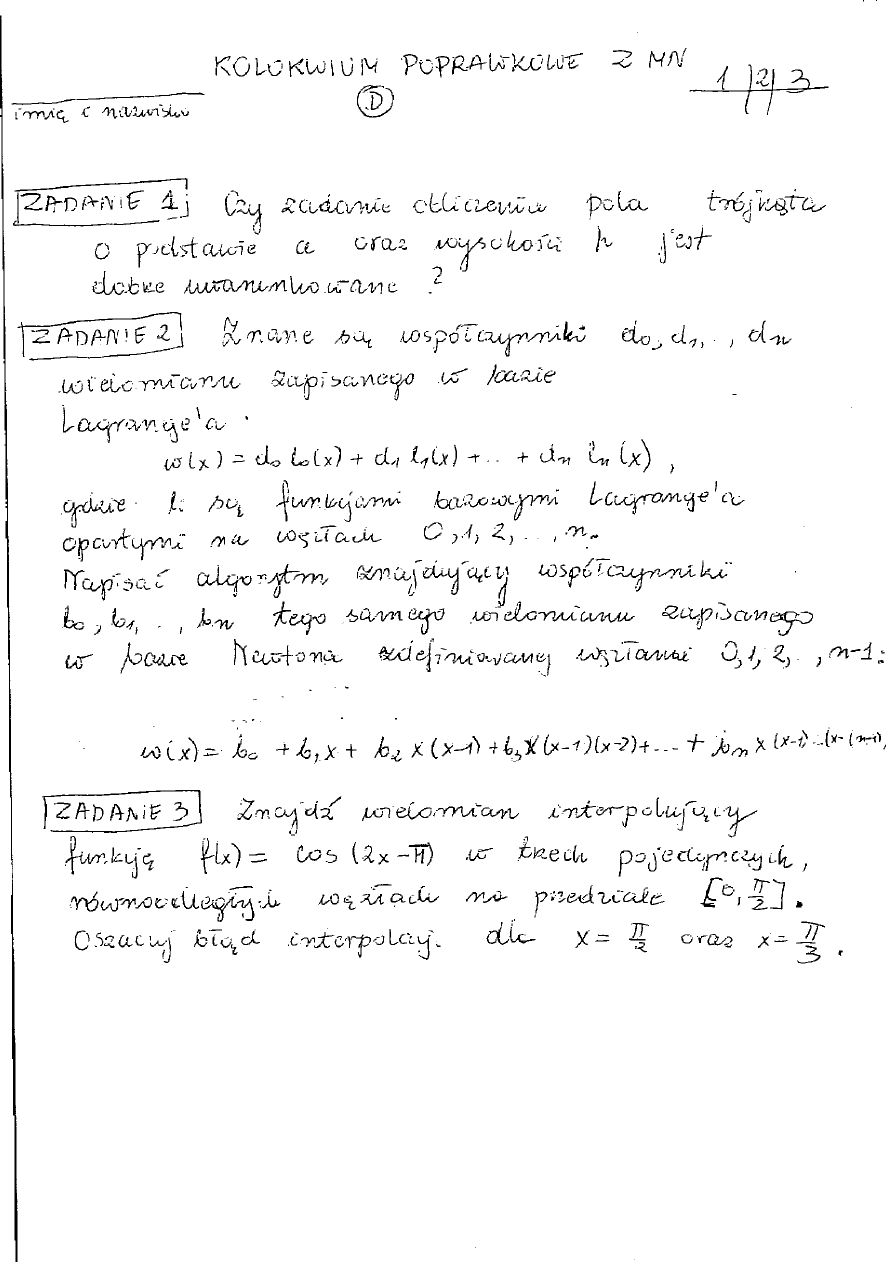 KOLOKWIUM POPRAWKOWE Z MN
1 | 2 | 3
imię i nazwisko
D
ZADANIE 1 Czy zadanie obliczenia pola trójkąta
o podstawie a oraz wysokości h jest
dobrze uwarunkowane ?
ZADANIE 2 Znane są współczynniki d0, d1, .., dn
wielomianu zapisanego w bazie
Lagrange'a .
w(x) = d0 l0(x) + d1 l1(x) + .. + dn ln(x) ,
gdzie li są funkcjami bazowymi Lagrange'a
opartymi na węzłach 0, 1, 2, .., n.
Napisać algorytm znajdujący współczynniki
b0, b1, .., bn tego samego wielomianu zapisanego
w bazie Newtona zdefiniowanej węzłami 0, 1, 2, .., n-1:
w(x) = b0 + b1 x + b2 x(x-1) + b3 x(x-1)(x-2) + ... + bn x(x-1)...(x-(n-1)),
ZADANIE 3 Znajdź wielomian interpolujący
funkcję f(x) = cos (2x - π) w trzech pojedynczych,
równoodległych węzłach na przedziale [0, π/2].
Oszacuj błąd interpolacji. dla x = π/2 oraz x = π/3 .